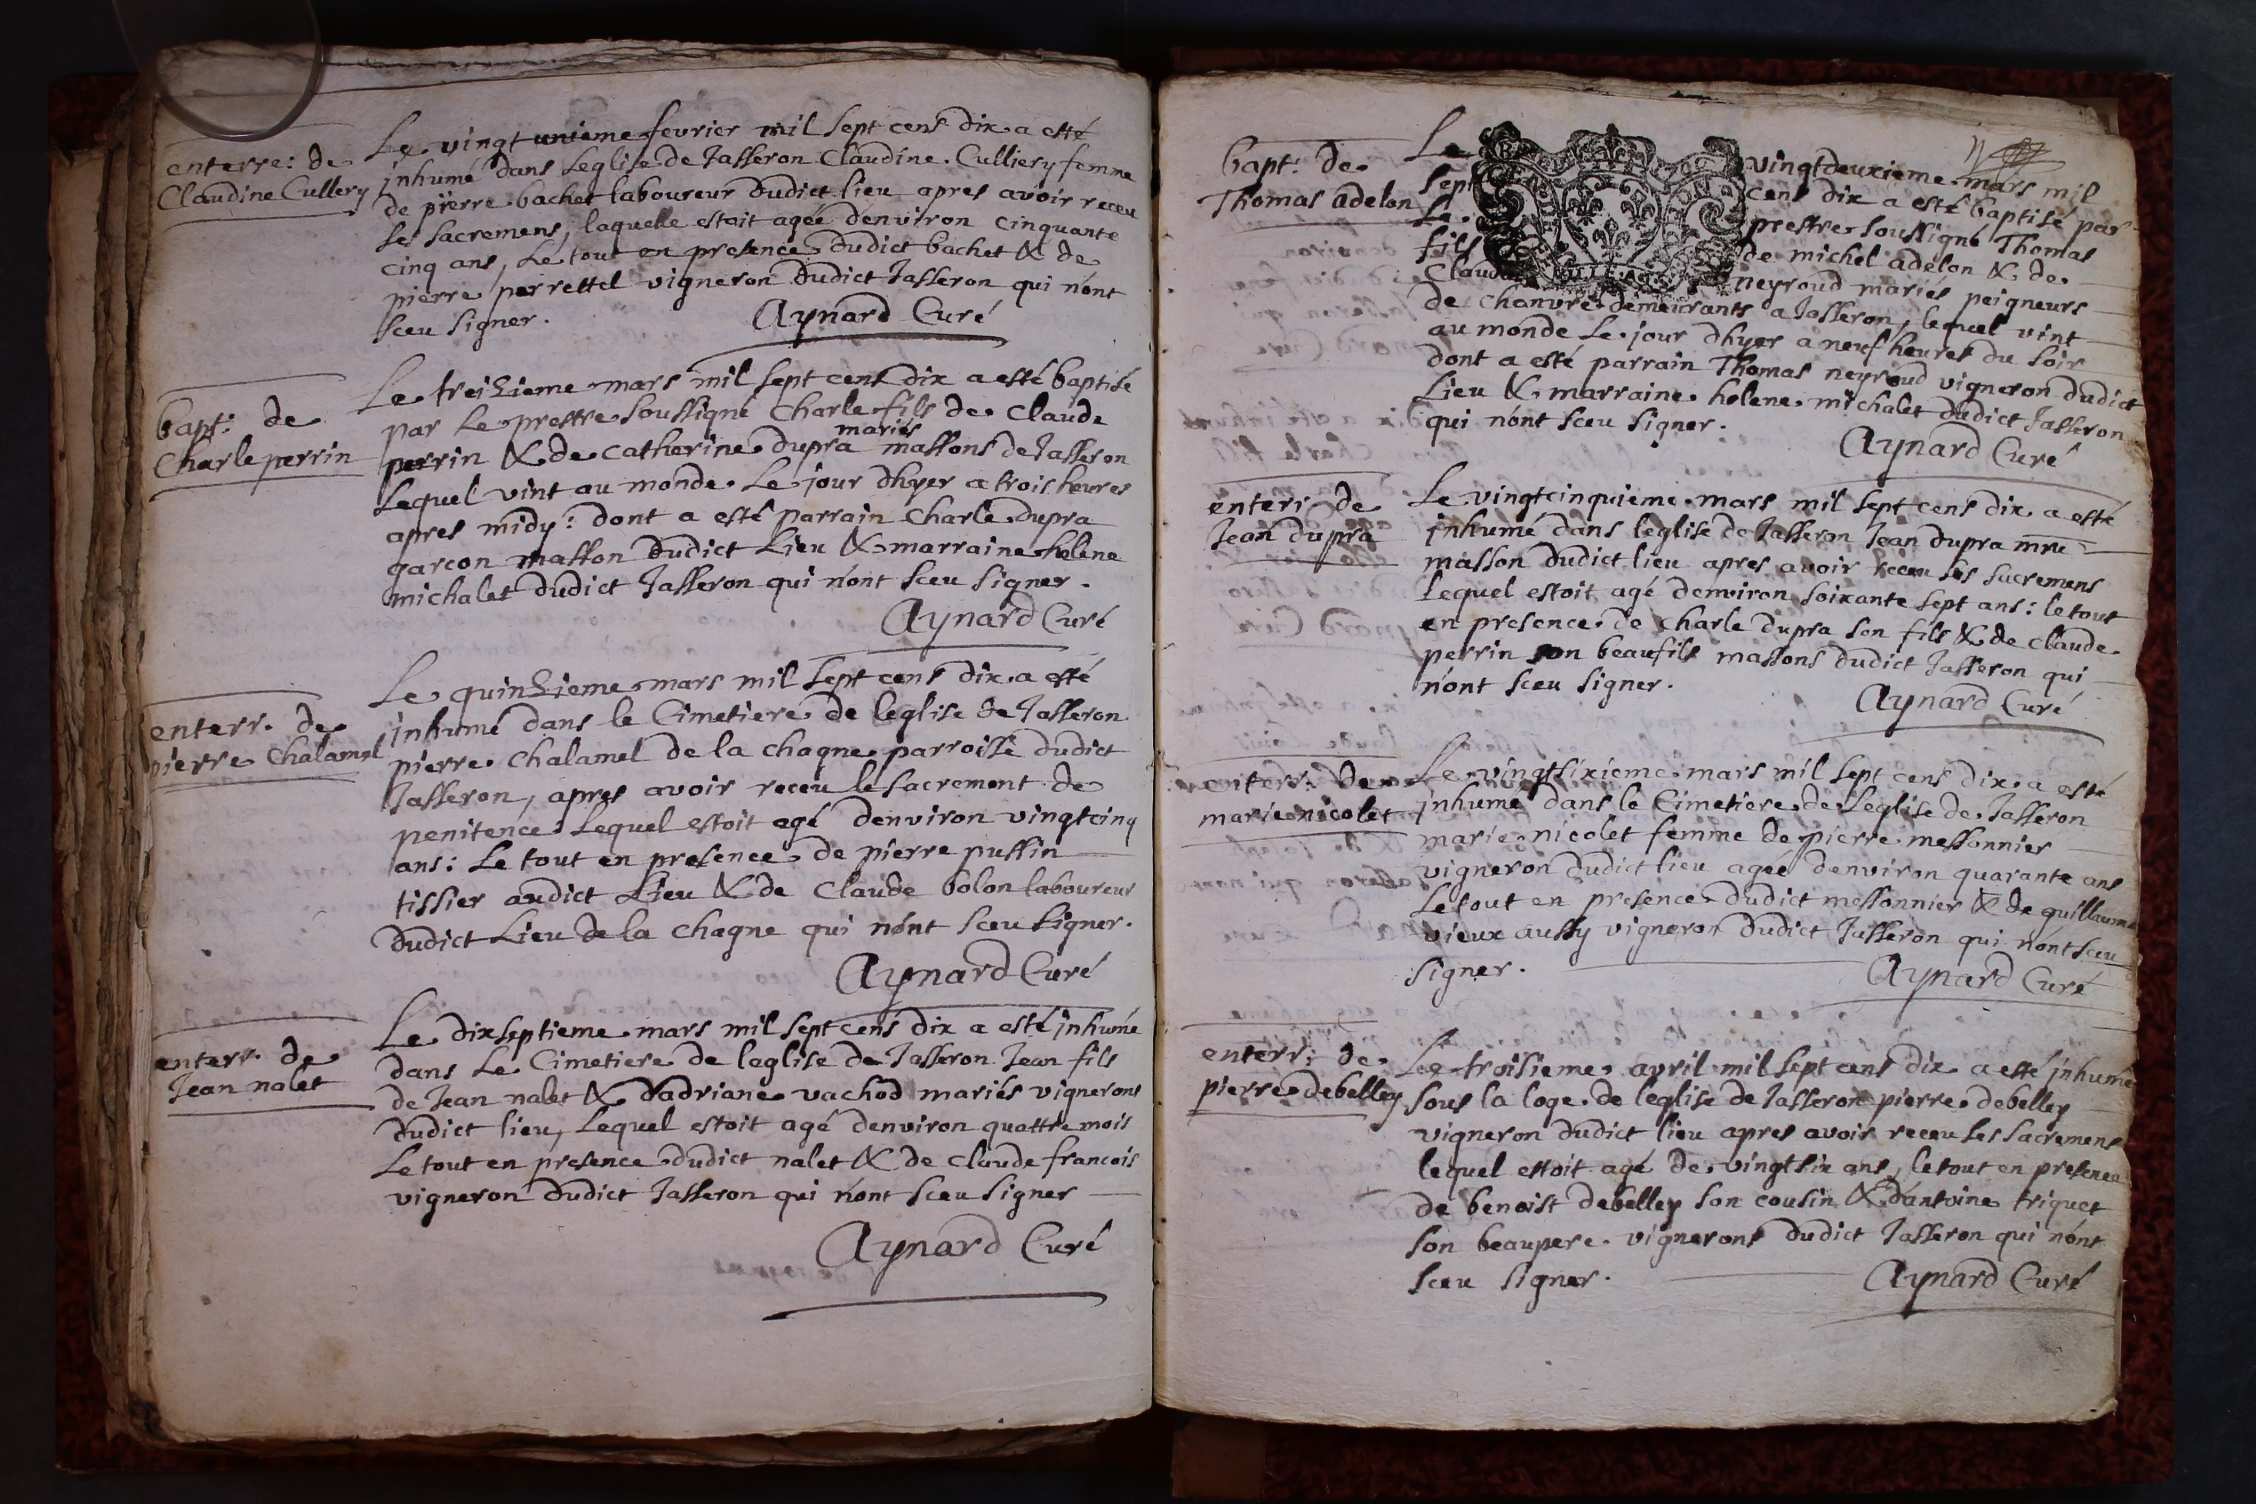 enterre: de
Claudine Cullery
Le vingt unieme fevrier mil sept cens dix a esté
inhumé dans Leglise de Jasseron Claudine Culliery femme
de pierre bachet laboureur dudict lieu apres avoir receu
ses sacremens, laquelle estoit agée denviron cinquante
cinq ans, Le tout en presence dudict bachet & de
pierre perrettel vigneron dudict Jasseron qui n'ont
sceu signer.
Aynard Curé
bapt: de
Charle perrin
Le treizieme mars mil sept cens dix a esté baptisé
par Le prestre soussigné Charle fils de Claude
mariés
perrin & de catherine dupra massons de Jasseron
Lequel vint au monde Le jour dhyer a trois heures
apres midy: dont a esté parrain Charle dupra
garcon masson dudict Lieu & marraine helene
michalet dudict Jasseron qui n'ont sceu signer.
Aynard Curé
enterr. de
pierre Chalamel
Le quinzieme mars mil sept cens dix a esté
inhumé dans le Cimetiere de leglise de Jasseron
pierre Chalamel de la chagne parroisse dudict
Jasseron, apres avoir receu le sacrement de
penitence Lequel estoit agé denviron vingtcinq
ans: Le tout en presence de pierre pussin
tissier audict Lieu & de Claude bolon laboureur
dudict Lieu de la chagne qui n'ont sceu signer.
Aynard Curé
enterr. de
Jean nalet
Le dixseptieme mars mil sept cens dix a esté inhumé
dans Le Cimetiere de leglise de Jasseron Jean fils
de Jean nalet & dadriane vachod mariés vignerons
dudict lieu, Lequel estoit agé denviron quattre mois
Le tout en presence dudict nalet & de claude francois
vigneron dudict Jasseron qui n'ont sceu signer
Aynard Curé
bapt: de
Thomas adelon
Le vingtdeuxieme mars mil
sept cens dix a esté baptisé par
Le prestre soussigné Thomas
fils de michel adelon & de
Claudine neyroud mariés peigneurs
de chanvre demeurants a Jasseron, lequel vint
au monde Le jour dhyer a neuf heures du soir
dont a esté parrain Thomas neyroud vigneron dudict
Lieu & marraine helene michalet dudict Jasseron
qui n'ont sceu signer.
Aynard Curé
enterr: de
Jean dupra
Le vingtcinquieme mars mil sept cens dix a esté
inhumé dans leglise de Jasseron Jean dupra mre
masson dudict lieu apres avoir receu ses sacremens
lequel estoit agé denviron soixante sept ans: le tout
en presence de charle dupra son fils & de claude
perrin son beaufils massons dudict Jasseron qui
n'ont sceu signer.
Aynard Curé
enterr: de
marie nicolet
Le vingtsixieme mars mil sept cens dix a esté
inhumé dans le Cimetiere de Leglise de Jasseron
marie nicolet femme de pierre messonnier
vigneron dudict lieu agée denviron quarante ans
Le tout en presence dudict messonnier & de guillaume
vieux aussy vigneron dudict Jasseron qui n'ont sceu
signer.
Aynard Curé
enterr: de
pierre debelley
Le troisieme avril mil sept cens dix a esté inhumé
sous la loge de leglise de Jasseron pierre debelley
vigneron dudict lieu apres avoir receu ses sacremens
lequel estoit agé de vingtsix ans, le tout en presence
de benoist debelley son cousin & d'antoine triquet
son beaupere vignerons dudict Jasseron qui n'ont
sceu signer.
Aynard Curé